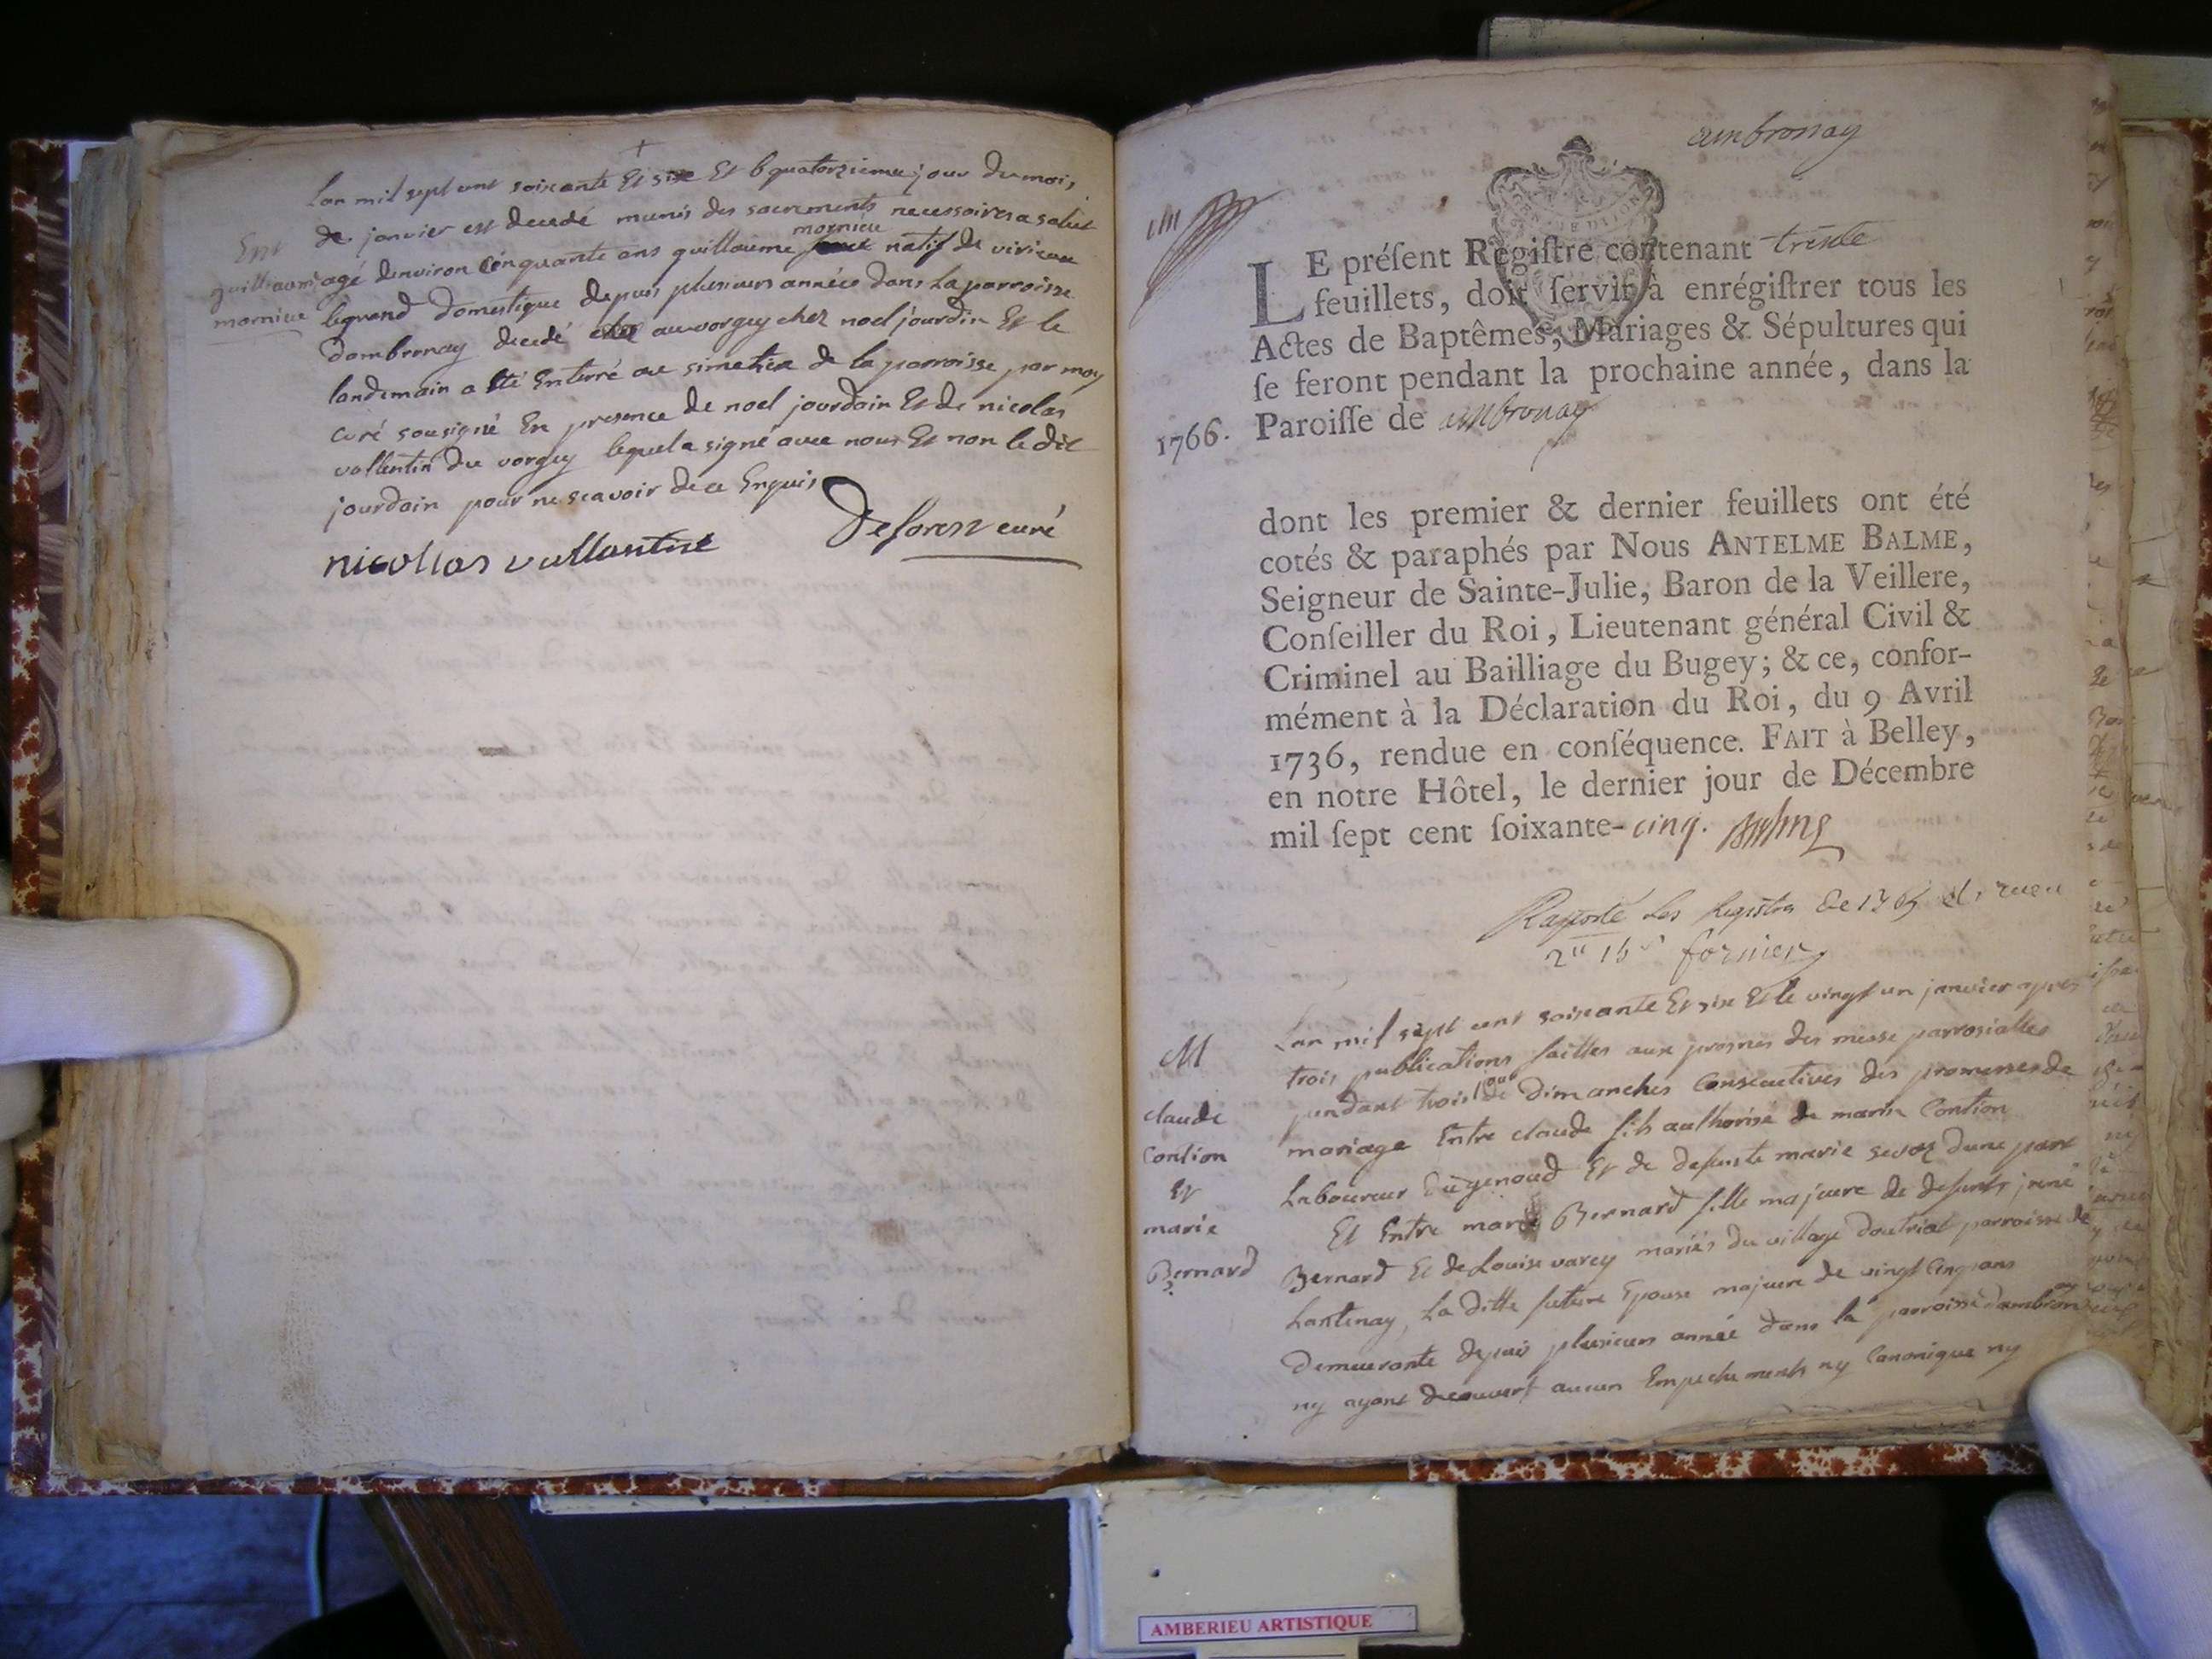 Lan mil sept cent soixante Et six Et le quatorzieme jour du mois
de janvier est decedé munis des sacrements necessaires a salut
Ent
guilliaume
morniue
mornieu
agé denviron cinquante ans guillaume natif de virieux
legrand domestique depuis plusieurs année dans La parroisse
dambronay decedé au vorgey chez noel jourdin Et le
landemain a Eté Enterré au simetiere de la parroisse par moy
curé sousigné En presence de noel jourdain Et de nicolas
vallentin du vorgey lequel a signé avec nous Et non le dit
jourdain pour ne scavoir de ce Enquis
nicollas vallantin
Deforest curé
ambronay
LE préſent Regiſtre contenant trente
feuillets, doit ſervir à enrégiſtrer tous les
Actes de Baptêmes, Mariages & Sépultures qui
ſe feront pendant la prochaine année, dans la
1766. Paroiſſe de ambronay
dont les premier & dernier feuillets ont été
cotés & paraphés par Nous ANTELME BALME,
Seigneur de Sainte-Julie, Baron de la Veillere,
Conſeiller du Roi, Lieutenant général Civil &
Criminel au Bailliage du Bugey; & ce, confor-
mément à la Déclaration du Roi, du 9 Avril
1736, rendue en conſéquence. FAIT à Belley,
en notre Hôtel, le dernier jour de Décembre
mil ſept cent ſoixante-cinq.
Raporté Les Registres de 1765 et receu
2# 15s fornier
M
claude
Contion
Et
marie
Bernard
Lan mil sept cent soixante Et six Et le vingt un janvier apres
trois publications faittes aux prosnes des messe parrosialles
pendant trois jour de dimanches Consecutives des promesses de
mariage Entre claude fils authorisé de martin Contion
Laboureur du genoud Et de defunte marie sevoz dune part
Et Entre marie Bernard fille majeure de defunts
Bernard Et de Louise varey mariés du village doutriaz parroisse de
Lantenay, La ditte future Epouse majeure de vingt Cinq ans
demeurante depuis plusieurs année dans la parroisse dambronay
ny ayant decouvert aucun Empechements ny Canonique ny
AMBERIEU ARTISTIQUE